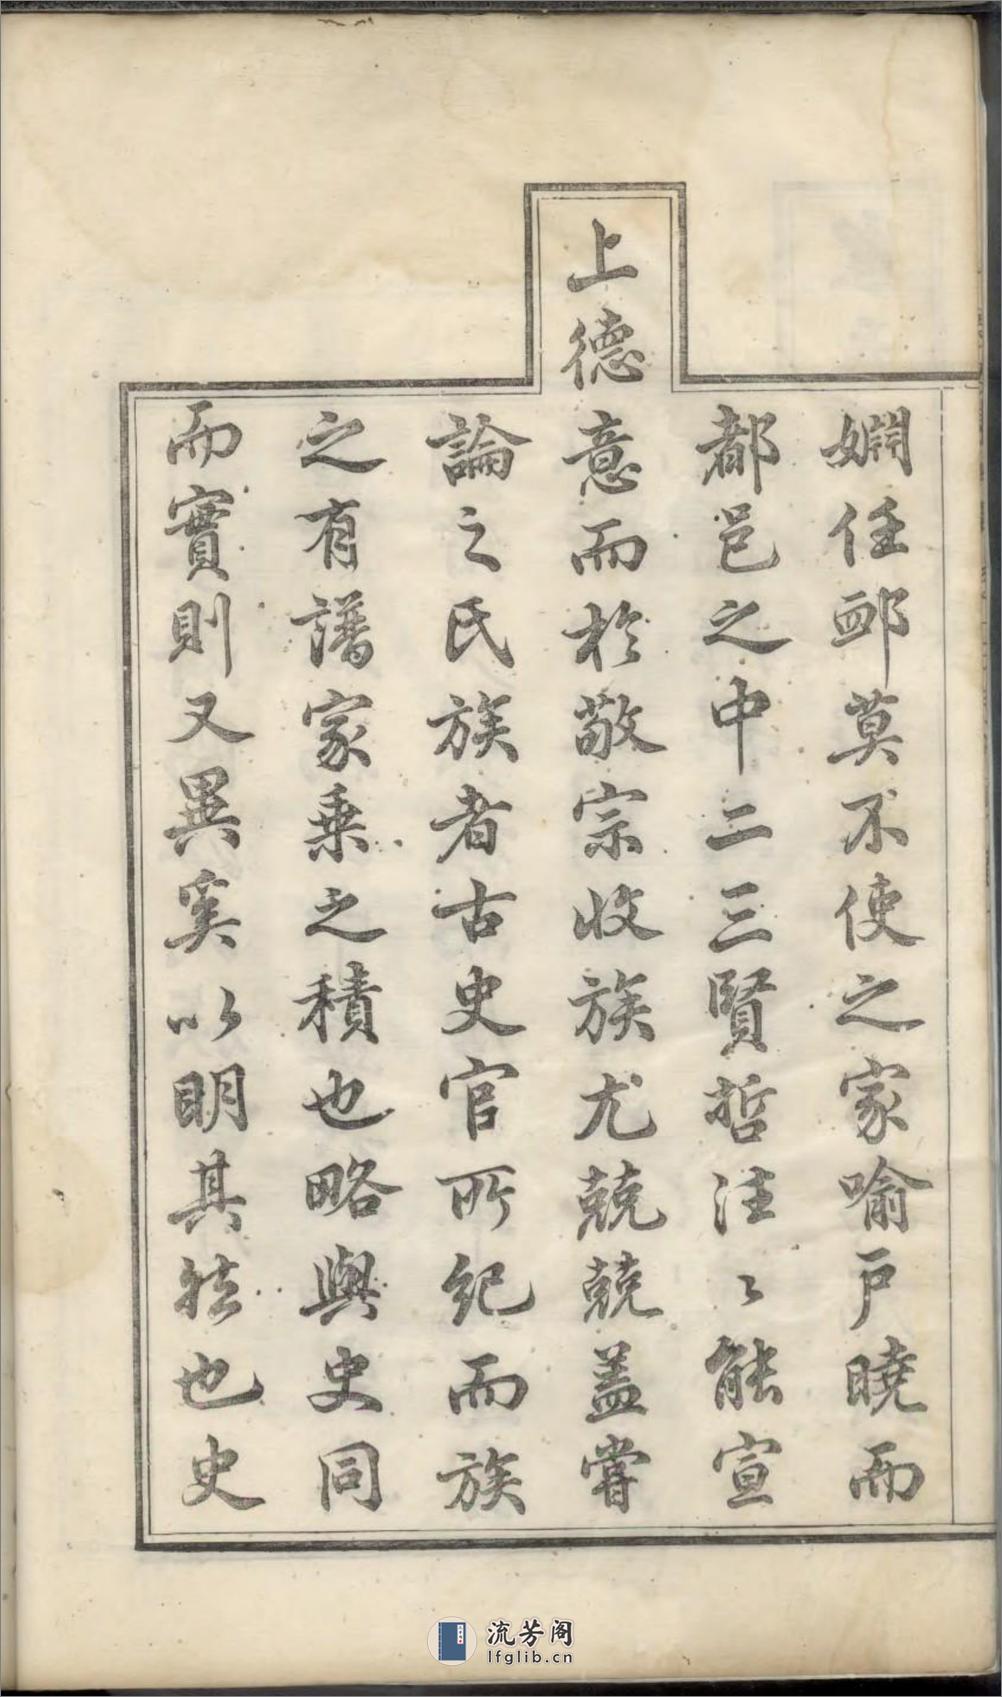 嫻任卹莫不使之家喻戶曉而
都邑之中二三賢哲往〻能宣
上德意而於敬宗收族尤兢兢蓋嘗
論之氏族者古史官所紀而族
之有譜家乗之積也略與史同
而實則又異奚以明其然也史
流芳阁
lfglib.cn